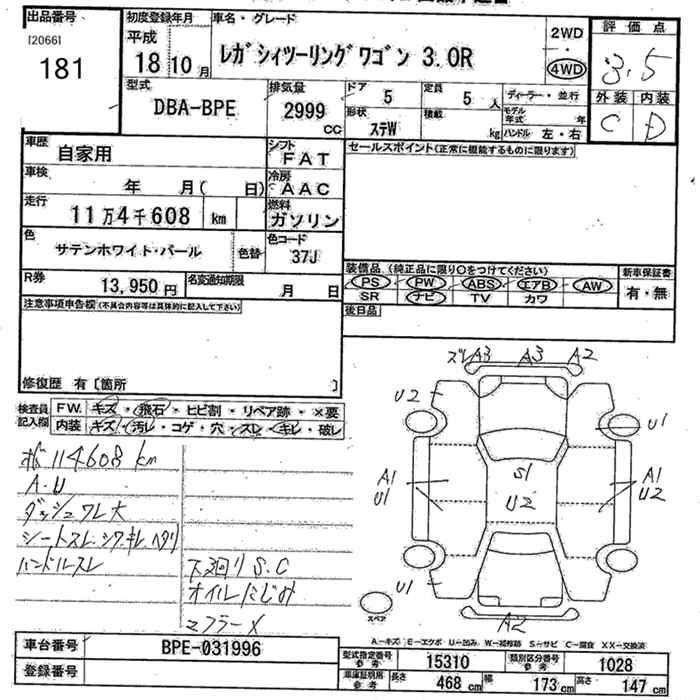 出品番号
[2066]
181
初度登録年月
平成
18 10 月
車名・グレード
レガシィツーリングワゴン 3.0R
2WD
・
4WD
評価点
3.5
外装 内装
C D
型式
DBA-BPE
排気量
2999
CC
ドア
5
定員
5 人
形状
ステW
積載
kg
ディーラー・並行
モデル年式 年
ハンドル 左・右
車歴
自家用
シフト
FAT
車検
年 月( 日)
冷房
AAC
走行
11万4千608 km
燃料
ガソリン
色
サテンホワイト・パール
色替
色コード
37J
R券
13,950 円
名変通知期限
月 日
セールスポイント(正常に機能するものに限ります)
装備品 (純正品に限り○をつけてください)
PS PW ABS エアB AW
SR ナビ TV カワ
新車保証書
有・無
後日品
注意事項申告欄(不具合内容等は具体的に記入して下さい)
修復歴 有〔箇所 〕
検査員記入欄
FW. キズ・飛石・ヒビ割・リペア跡・×要
内装 キズ・汚レ・コゲ・穴・スレ・キレ・破レ
114608 km
A・U
ダッシュワレ大
シートスレ.シワ.キレ.ヘタリ
ハンドルスレ
下廻りS.C
オイルにじみ
マフラーX
ズレA3 A3 A2
U2
U1
A1
U1
S1
U2
A1
U2
U1
A2
スペア
A−キズ E−エクボ U−凹み W−補修跡 S−サビ C−腐食 XX−交換済
車台番号
BPE-031996
登録番号
型式指定番号
参考
15310
類別区分番号
参考
1028
車庫証明用
参考
長さ
468 cm
幅
173 cm
高さ
147 cm